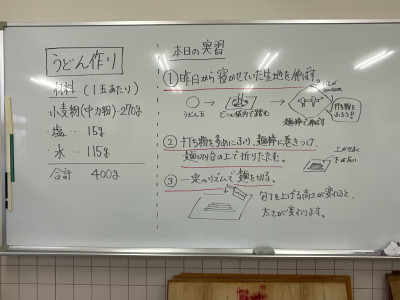 うどん作り
材料(1玉あたり)
小麦粉(中力粉)…270g
・塩 … 15g
・水 … 115g
合計 400g
本日の実習
① 昨日から寝かせていた生地を伸ばす。
うどん玉
ビニール袋内で踏む
麺棒で伸ばす
打ち粉を
ふろう!!
② 打ち粉を多めにふり、麺棒に巻きつけ、
麺切り台の上で折りたたむ。
③ 一定のリズムで麺を切る。
包丁を上げる高さが変わると、
太さが変わります。